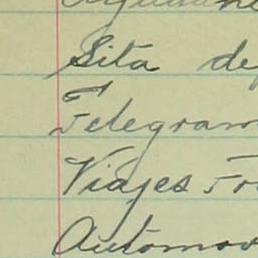 Sita de
Telegram
Viajes Fr
Automov